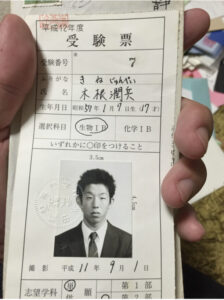 平成12年度
受験票
受験番号 7
ふりがな きねじゅんぺい
氏名 木根潤兵
生年月日 昭和57年1月7日生(17才)
選択科目 生物IB 化学IB
いずれかに○印をつけること
3.5cm
撮影 平成11年9月1日
志望学科 願 第1部
第2部